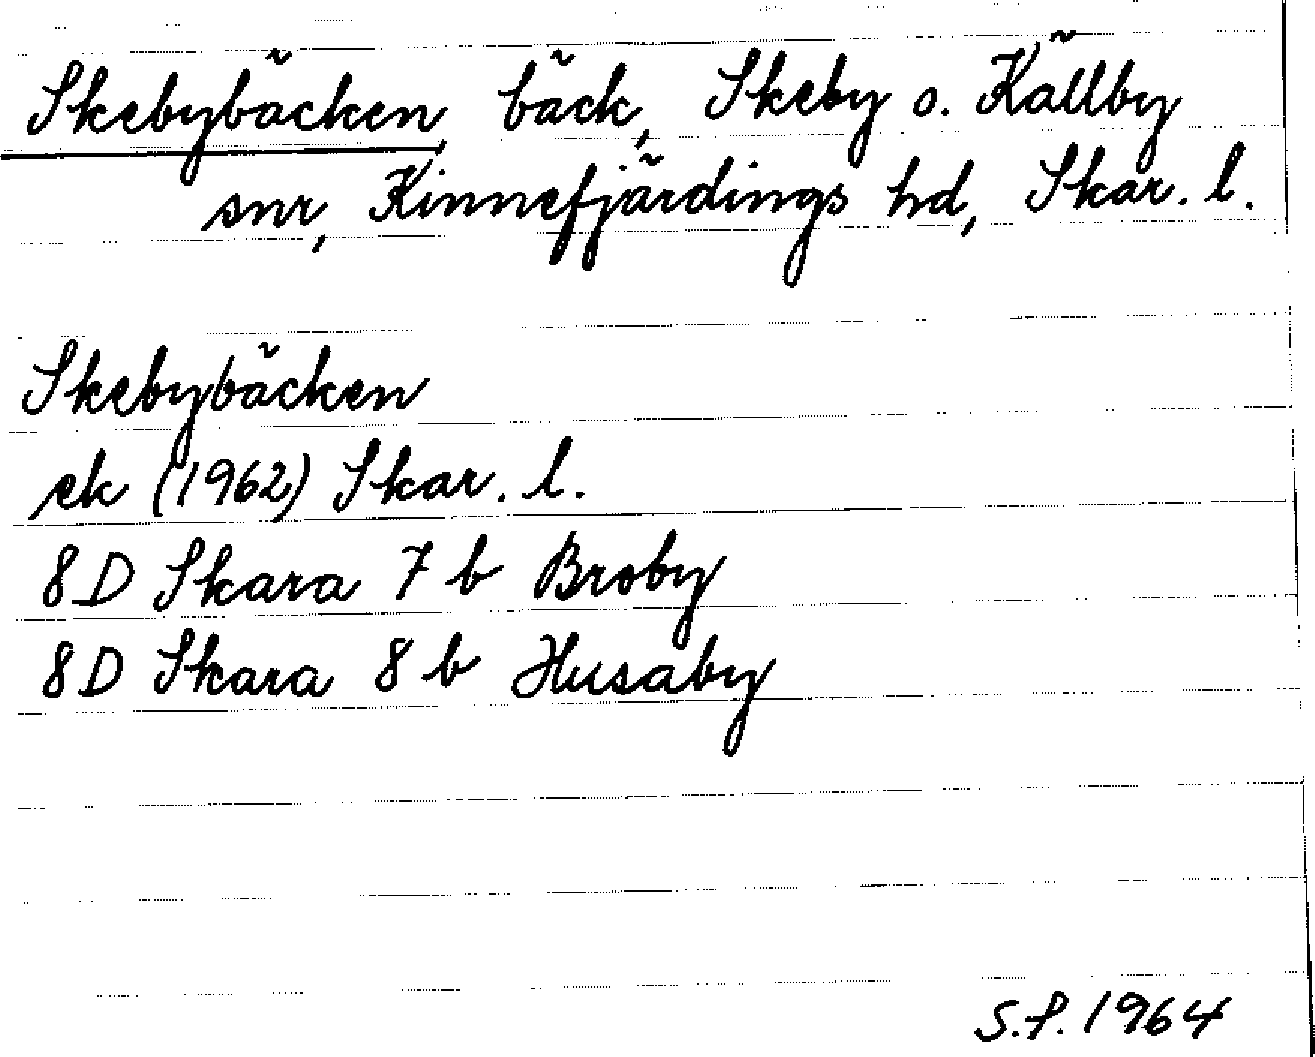 Skebybäcken, bäck, Skeby o. Källby
snr, Kinnefjärdings hd, Skar. l.
Skebybäcken
ek (1962) Skar. l.
8D Skara 7 b Broby
8D Skara 8 b Husaby
S.P. 1964